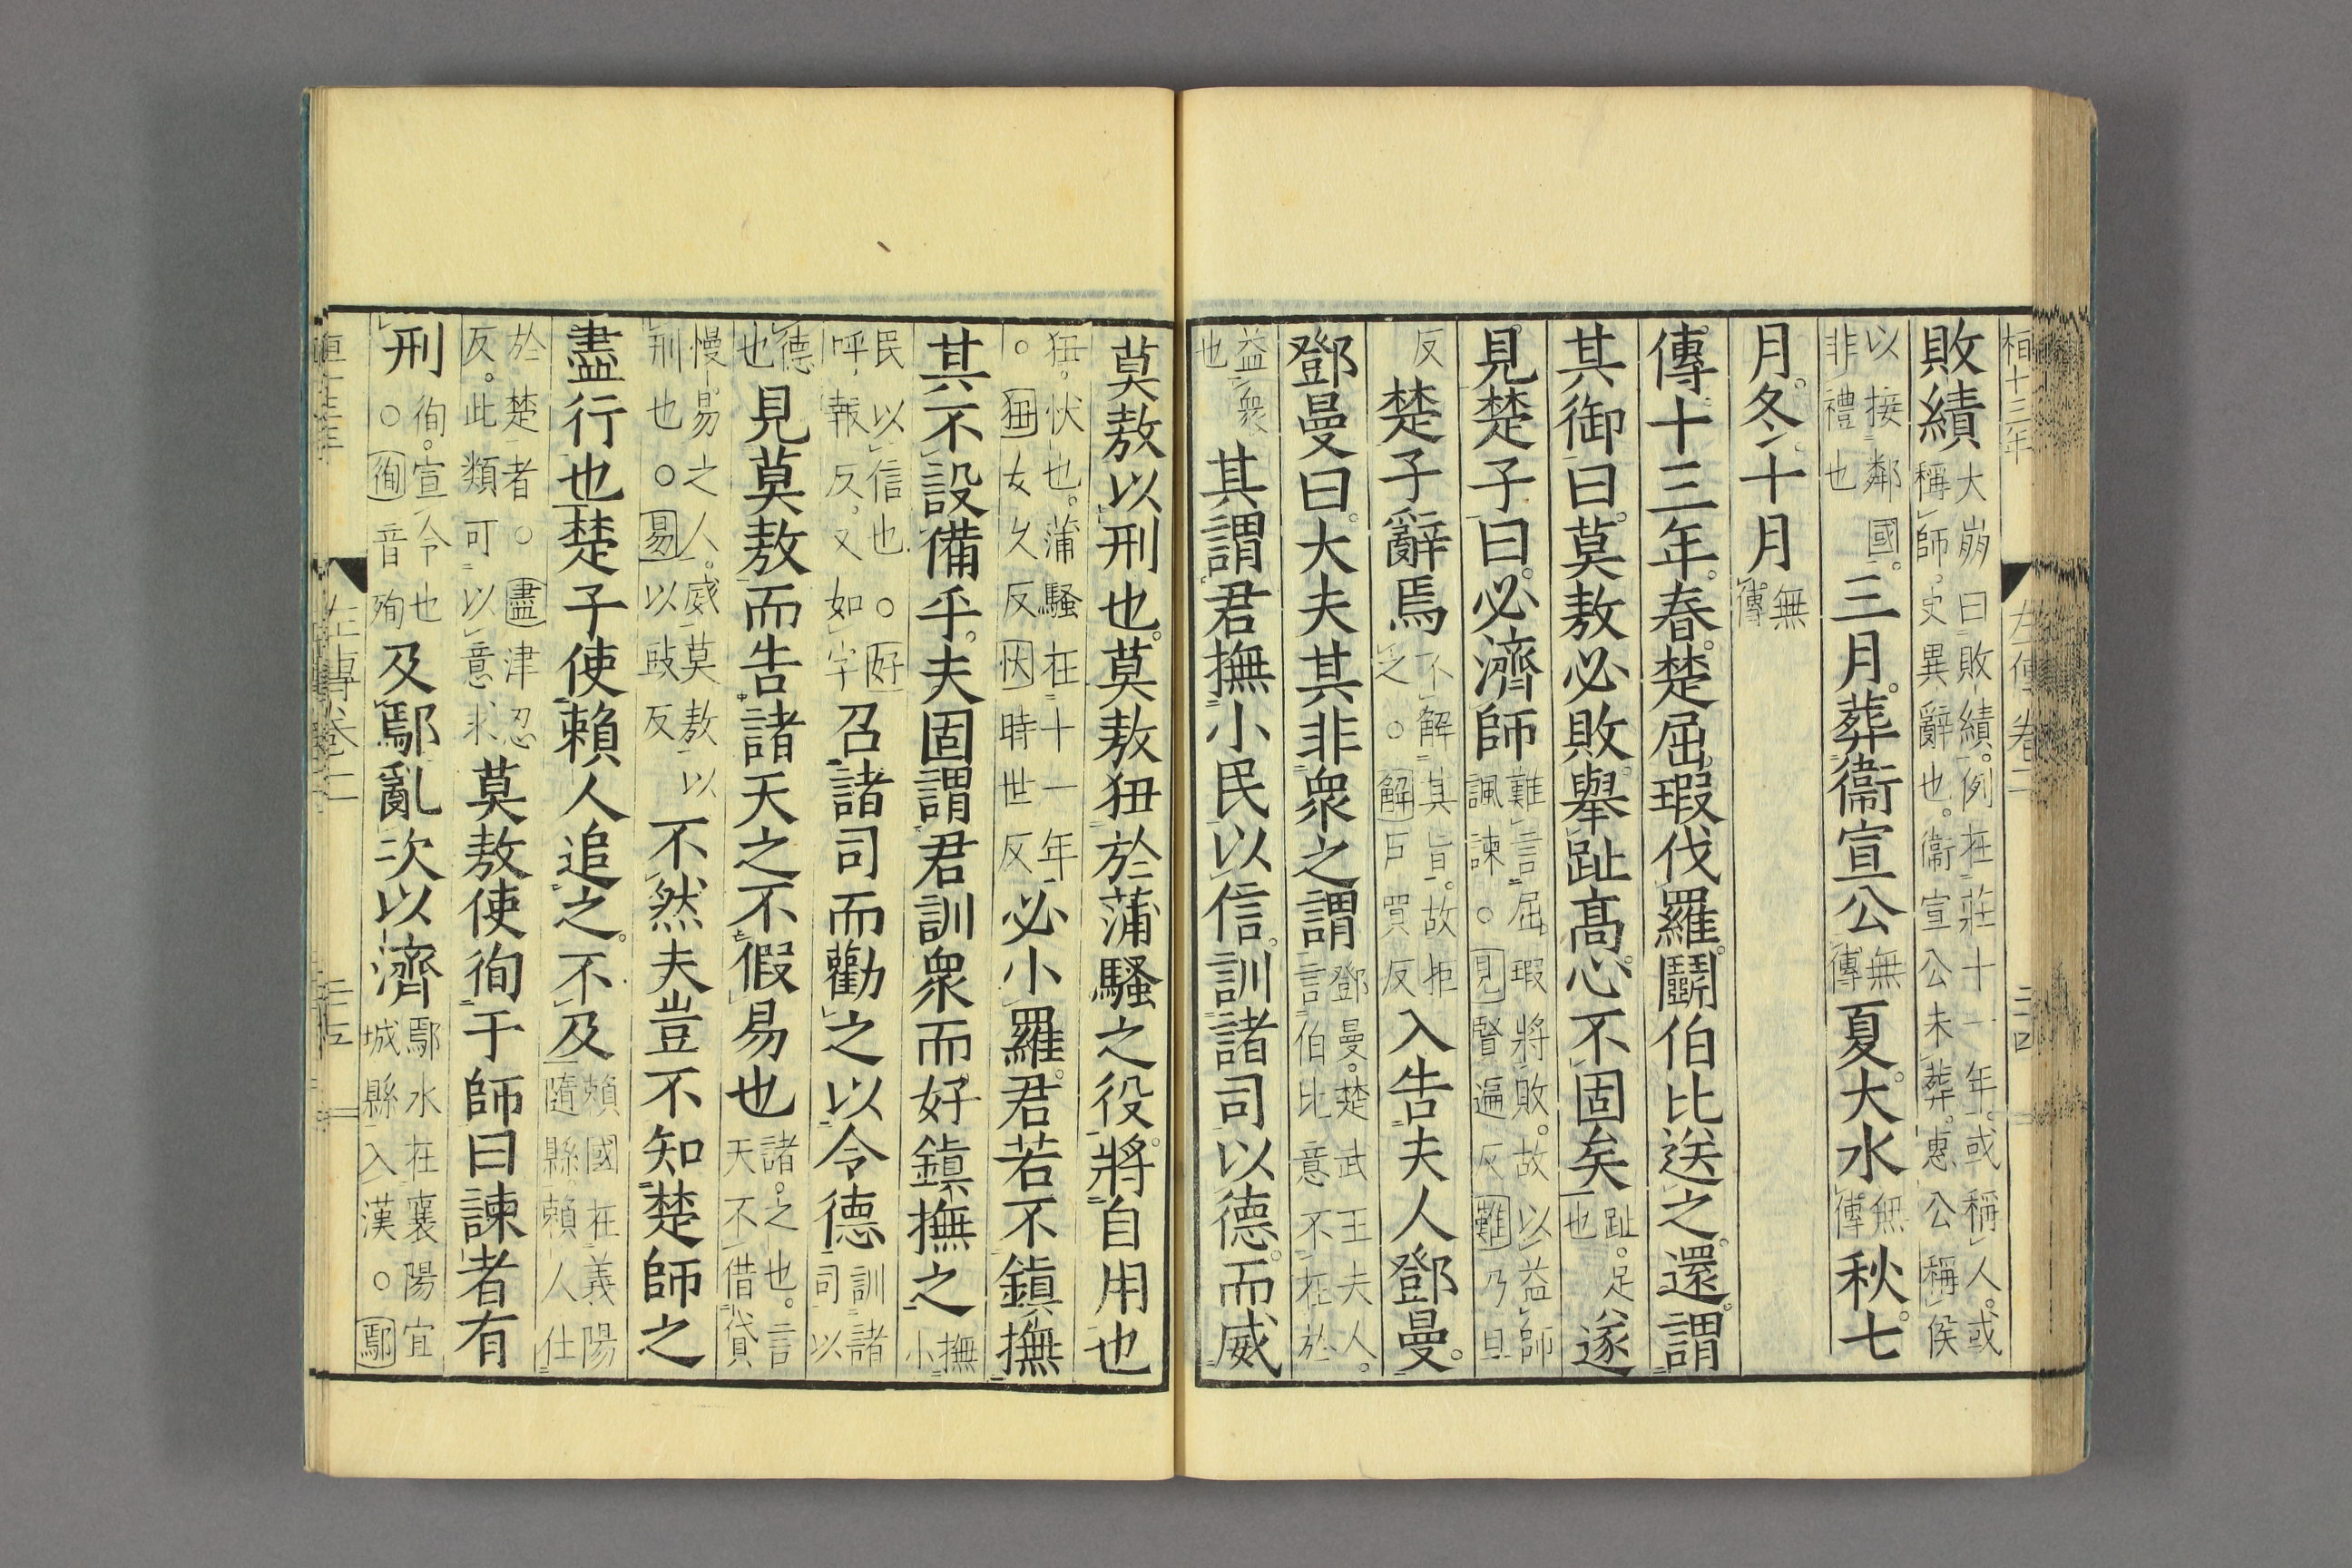 桓十三年 左傳卷二 二四
敗績大崩曰敗績例在莊十一年或稱人或稱師史異辭也衞宣公未葬惠公稱侯
以接鄰國非禮也三月葬衞宣公無傳夏大水無傳秋七
月冬十月無傳
傳十三年春楚屈瑕伐羅鬭伯比送之還謂
其御曰莫敖必敗舉趾高心不固矣趾足也遂
見楚子曰必濟師難言屈瑕將敗故以益師諷諫○見賢遍反難乃旦
反楚子辭焉不解其旨故拒之○解戶買反入告夫人鄧曼
鄧曼曰大夫其非衆之謂鄧曼楚武王夫人言伯比意不在於
益衆也其謂君撫小民以信訓諸司以德而威
莫敖以刑也莫敖狃於蒲騷之役將自用也
狃忕也蒲騷在十一年○狃女久反忕時世反必小羅君若不鎮撫
其不設備乎夫固謂君訓衆而好鎮撫之撫小
民以信也○好呼報反又如字召諸司而勸之以令德訓諸司以
德也見莫敖而告諸天之不假易也諸之也言天不借貸
慢易之人威莫敖以刑也○易以豉反不然夫豈不知楚師之
盡行也楚子使賴人追之不及賴國在義陽隨縣賴人仕
於楚者○盡津忍反此類可以意求莫敖使徇于師曰諫者有
刑徇宣令也○徇音殉及鄢亂次以濟鄢水在襄陽宜城縣入漢○鄢
左傳卷二 二五